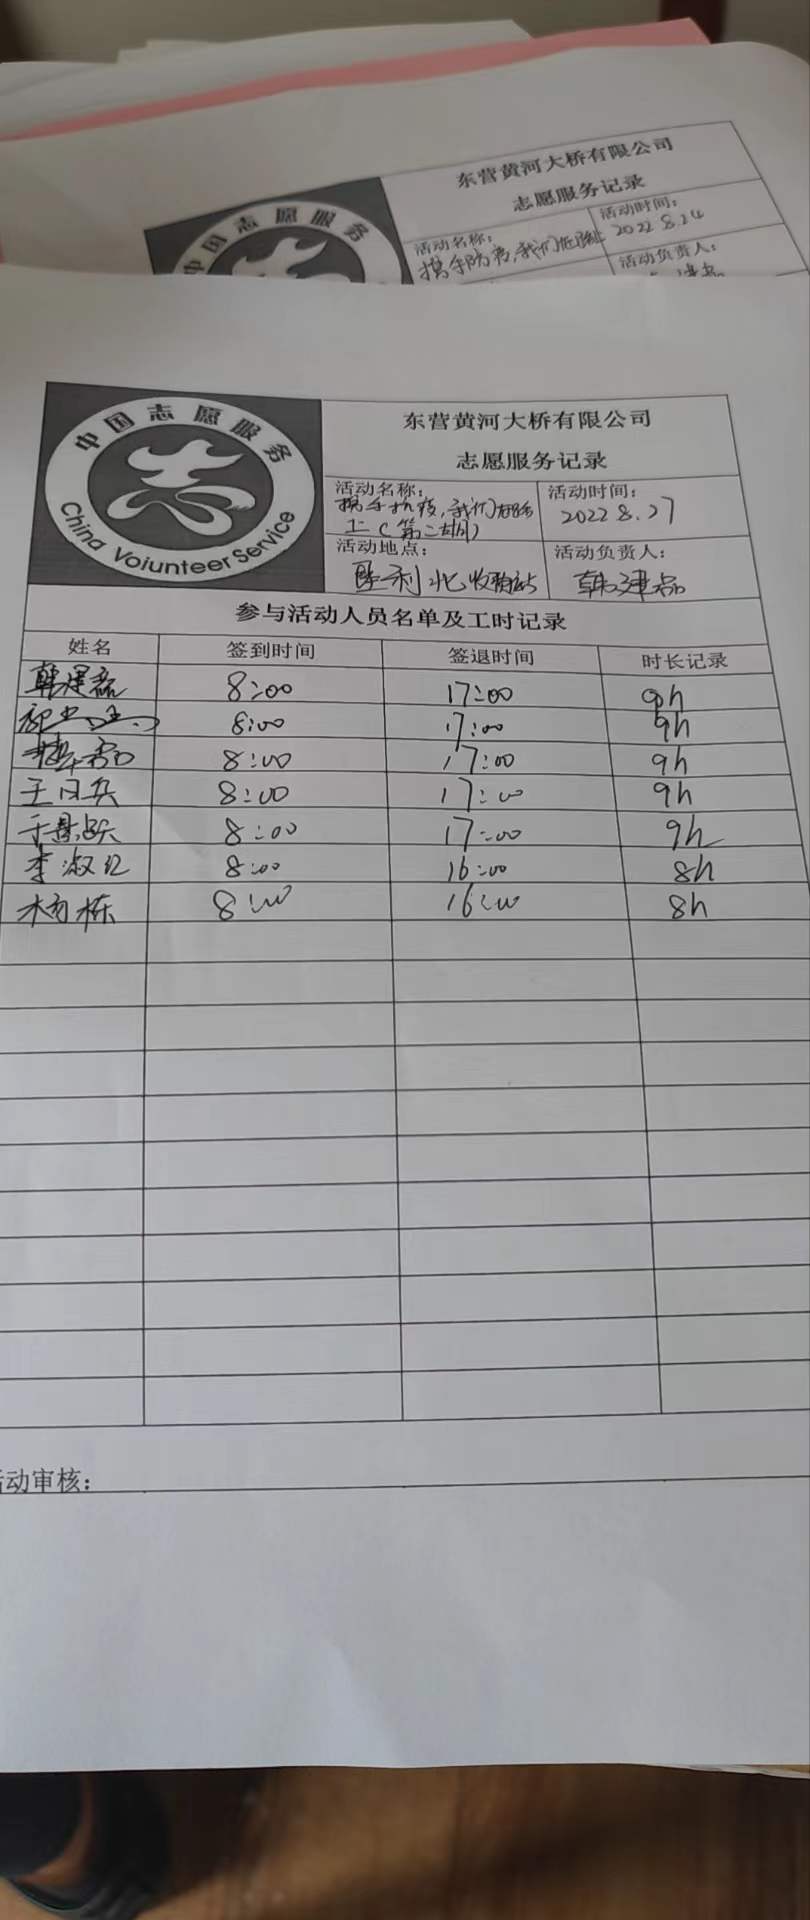 东营黄河大桥有限公司
志愿服务记录
活动名称：
活动时间：
携手防疫,我们在路上
2022 8.24
活动负责人：
中国志愿服务
中国志愿服务
China Voiunteer Service
东营黄河大桥有限公司
志愿服务记录
活动名称：
携手抗疫,我们在路
上(第二期)
活动时间：
2022 8.27
活动地点：
胜利北收费站
活动负责人：
韩建磊
参与活动人员名单及工时记录
姓名 签到时间 签退时间 时长记录
韩建磊 8:00 17:00 9h
8:00 17:00 9h
8:00 17:00 9h
王风兵 8:00 17:00 9h
于景跃 8:00 17:00 9h
李淑红 8:00 16:00 8h
杨栋 8:00 16:00 8h
动审核：